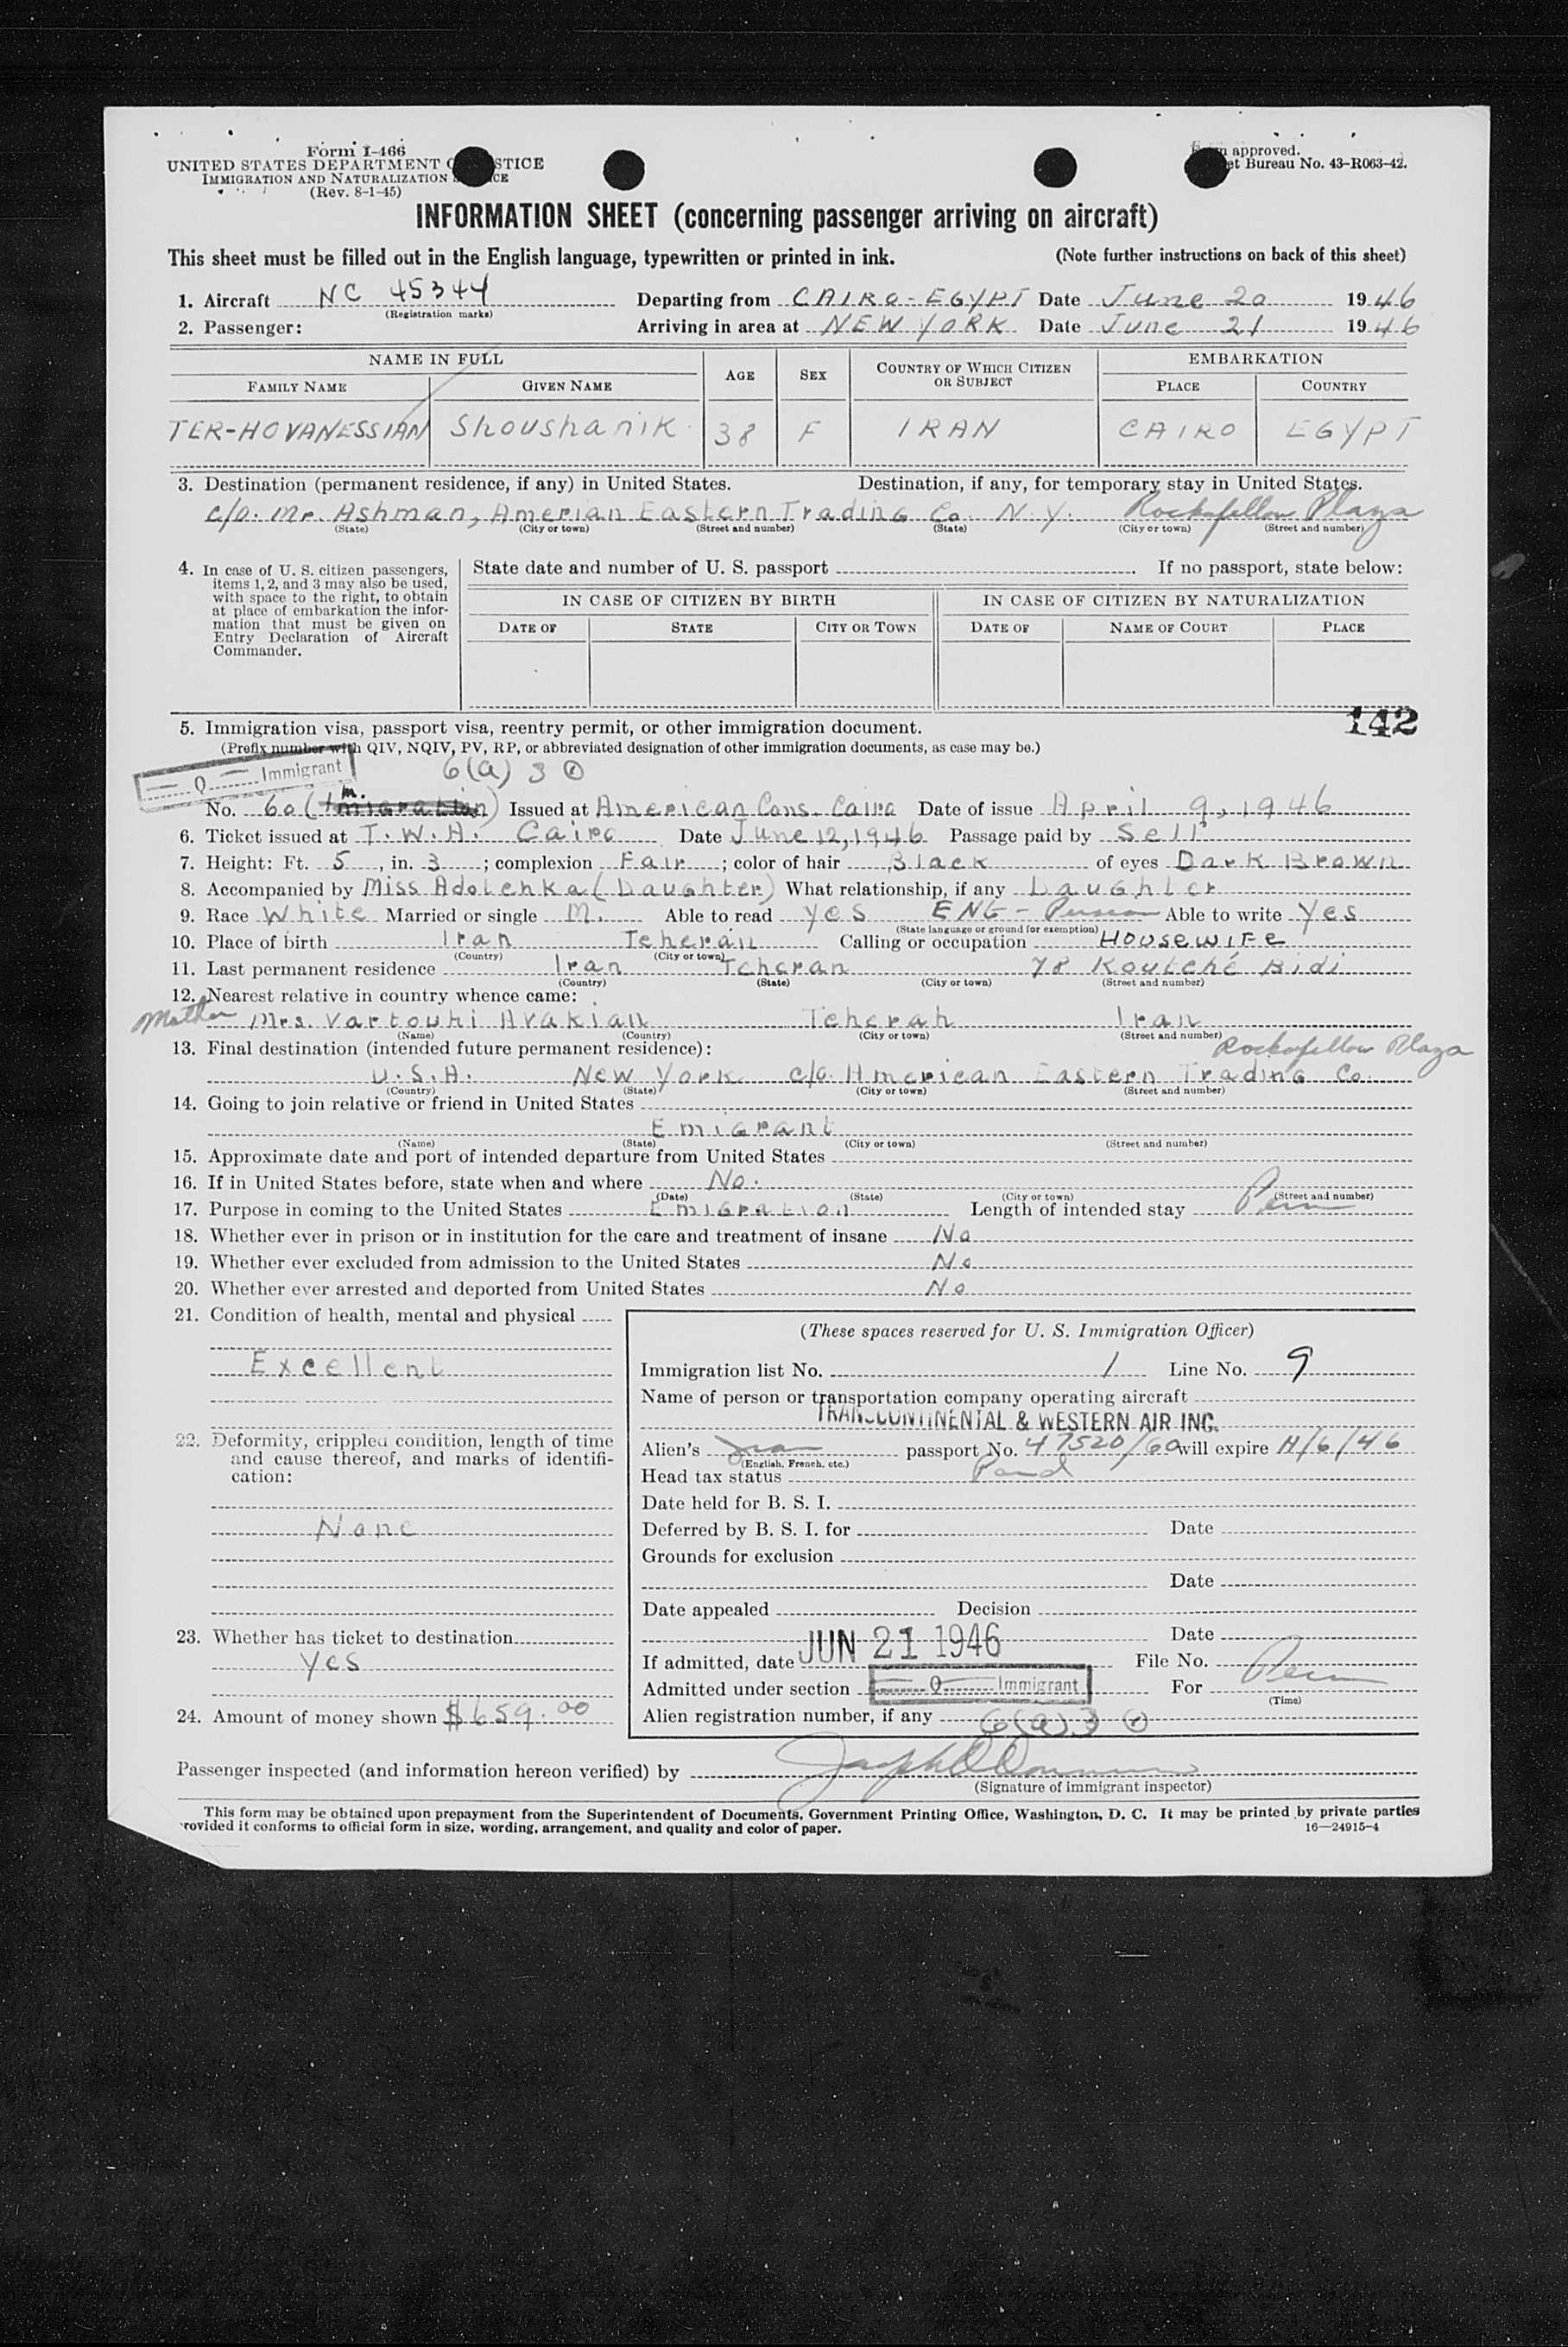 Form I-466
UNITED STATES DEPARTMENT O STICE
IMMIGRATION AND NATURALIZATION S ICE
(Rev. 8-1-45)
approved.
et Bureau No. 43-R063-42.
INFORMATION SHEET (concerning passenger arriving on aircraft)
This sheet must be filled out in the English language, typewritten or printed in ink. (Note further instructions on back of this sheet)
1. Aircraft NC 45344 Departing from CAIRO-EGYPT Date June 20 1946
(Registration marks)
2. Passenger: Arriving in area at NEW YORK Date June 21 1946
NAME IN FULL AGE SEX COUNTRY OF WHICH CITIZEN OR SUBJECT EMBARKATION
FAMILY NAME GIVEN NAME PLACE COUNTRY
TER-HOVANESSIAN Shoushanik 38 F IRAN CAIRO EGYPT
3. Destination (permanent residence, if any) in United States. Destination, if any, for temporary stay in United States.
c/o. Mr. Ashman, Amerian Eastern Trading Co. N.Y. Rockafellow Plaza
(State) (City or town) (Street and number) (State) (City or town) (Street and number)
4. In case of U. S. citizen passengers, items 1, 2, and 3 may also be used, with space to the right, to obtain at place of embarkation the information that must be given on Entry Declaration of Aircraft Commander.
State date and number of U. S. passport If no passport, state below:
IN CASE OF CITIZEN BY BIRTH IN CASE OF CITIZEN BY NATURALIZATION
DATE OF STATE CITY OR TOWN DATE OF NAME OF COURT PLACE
142
5. Immigration visa, passport visa, reentry permit, or other immigration document.
(Prefix number with QIV, NQIV, PV, RP, or abbreviated designation of other immigration documents, as case may be.)
Q Immigrant 6(a) 3
No. 60 (Imigration) Issued at American Cons. Cairo Date of issue April 9, 1946
6. Ticket issued at T.W.A. Cairo Date June 12, 1946 Passage paid by Self
7. Height: Ft. 5, in. 3; complexion Fair; color of hair Black of eyes Dark Brown
8. Accompanied by Miss Adolenka (Daughter) What relationship, if any Daughter
9. Race White Married or single M. Able to read Yes ENG - Persian Able to write Yes
(State language or ground for exemption)
10. Place of birth Iran Teheran Calling or occupation HOUSEWIFE
(Country) (City or town)
11. Last permanent residence Iran Teheran 78 Koutché Bidi
(Country) (State) (City or town) (Street and number)
12. Nearest relative in country whence came:
Mother Mrs. Vartouhi Avakian Teheran Iran
(Name) (Country) (City or town) (Street and number)
13. Final destination (intended future permanent residence): Rockafellow Plaza
U.S.A. New York c/o American Eastern Trading Co.
(Country) (State) (City or town) (Street and number)
14. Going to join relative or friend in United States
Emigrant
(Name) (State) (City or town) (Street and number)
15. Approximate date and port of intended departure from United States
16. If in United States before, state when and where No.
(Date) (State) (City or town) (Street and number)
17. Purpose in coming to the United States Emigration Length of intended stay Perm
18. Whether ever in prison or in institution for the care and treatment of insane No
19. Whether ever excluded from admission to the United States No
20. Whether ever arrested and deported from United States No
21. Condition of health, mental and physical
Excellent
22. Deformity, crippled condition, length of time and cause thereof, and marks of identification:
None
23. Whether has ticket to destination
Yes
24. Amount of money shown $659.00
(These spaces reserved for U. S. Immigration Officer)
Immigration list No. 1 Line No. 9
Name of person or transportation company operating aircraft
TRANSCONTINENTAL & WESTERN AIR INC.
Alien's Iran passport No. 47520/60 will expire 4/6/46
(English, French, etc.)
Head tax status Paid
Date held for B. S. I.
Deferred by B. S. I. for Date
Grounds for exclusion
Date
Date appealed Decision
Date
If admitted, date JUN 21 1946 File No.
Admitted under section Q Immigrant For Perm
(Time)
Alien registration number, if any 6(a)3
Passenger inspected (and information hereon verified) by
(Signature of immigrant inspector)
This form may be obtained upon prepayment from the Superintendent of Documents, Government Printing Office, Washington, D. C. It may be printed by private parties
rovided it conforms to official form in size, wording, arrangement, and quality and color of paper. 16—24915-4